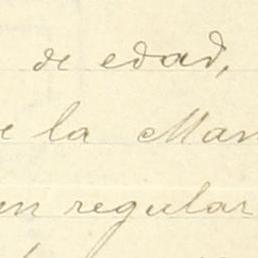 de edad,
e la Man
en regular